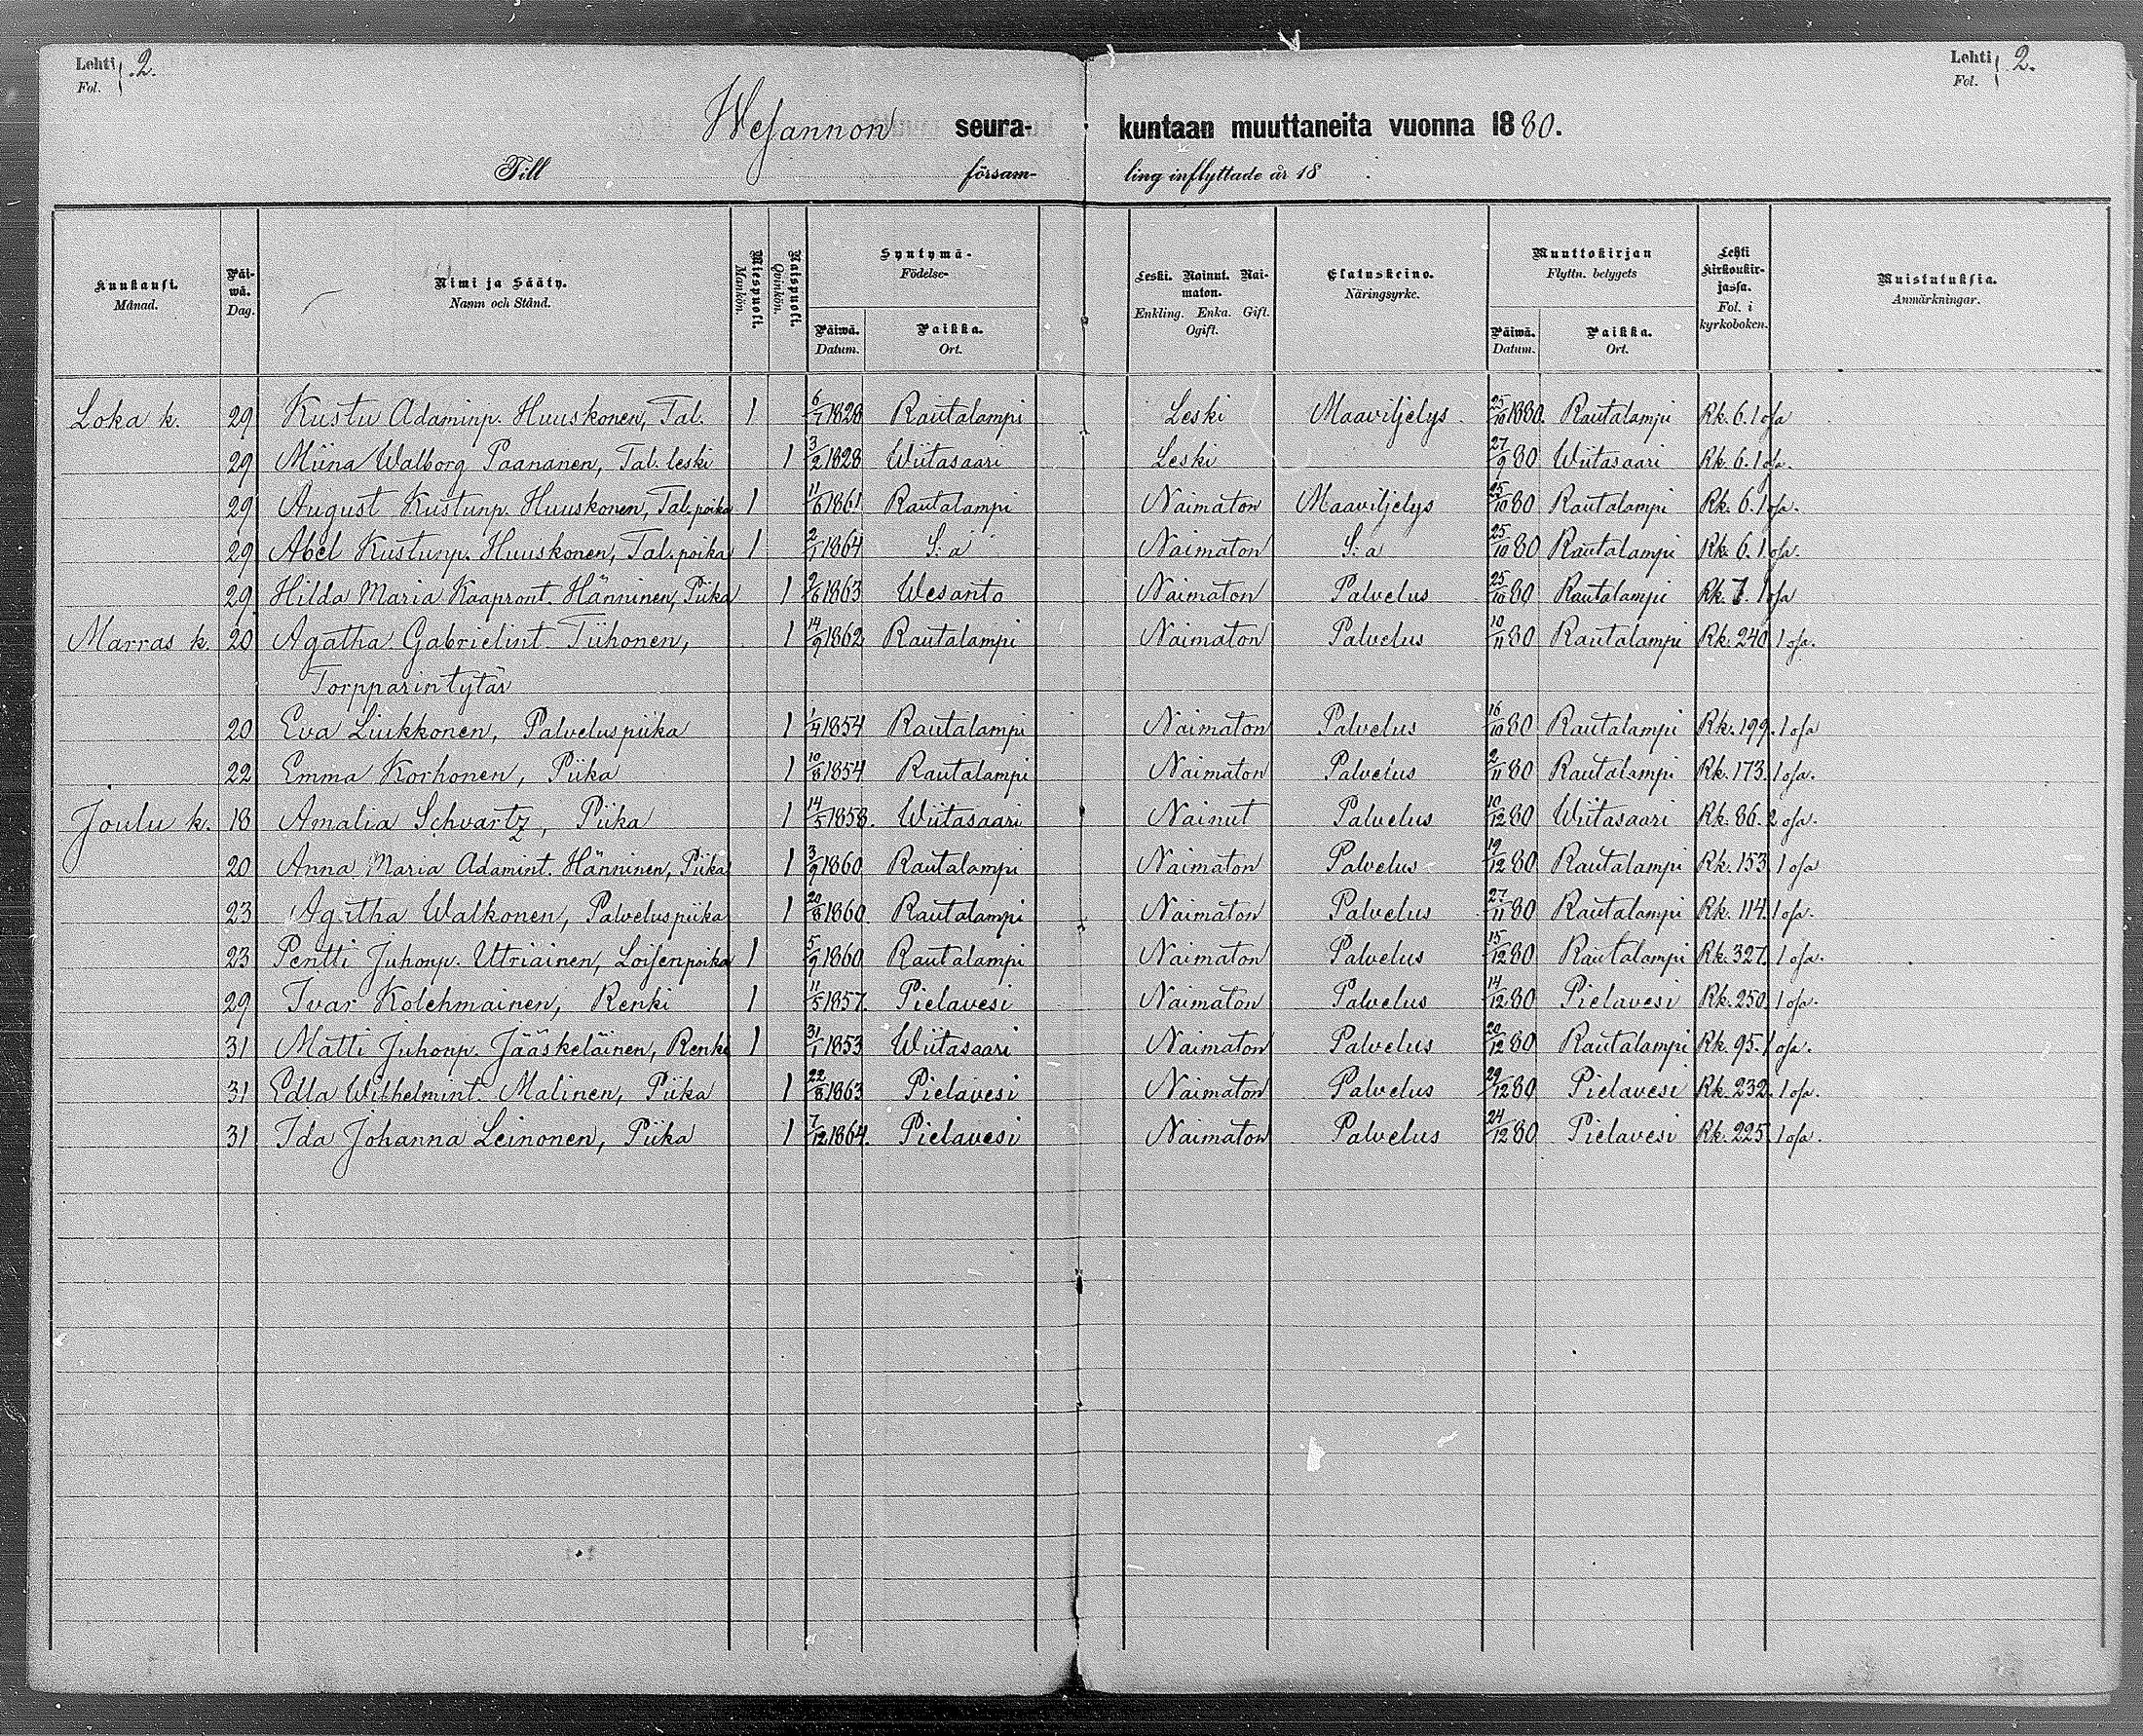 Lehti 2. Lehti 2.
Fol. Fol.
Wesannon seura- kuntaan muuttaneita vuonna 1880.
Till försam- ling inflyttade år 18 .
Kuukausi. Månad. Päi-wä. Dag. Nimi ja Sääty. Namn och Stånd. Miespuoli. Mankön. Naispuoli. Qvinkön. Syntymä- Födelse- Päiwä. Datum. Paikka. Ort. Leski. Nainut. Nai-maton. Enkling. Enka. Gift. Ogift. Elatuskeino. Näringsyrke. Muuttokirjan Flyttn. betygets Päiwä. Datum. Paikka. Ort. Lehti Kirkonkir-jassa. Fol. i kyrkoboken. Muistutuksia. Anmärkningar.
Loka k. 29 Kustu Adaminp. Huuskonen, Tal. 1 6/1 1828 Rautalampi Leski Maaviljelys. 25/10 1880. Rautalampi Rk. 6. 1 osa
29 Miina Walborg Paananen, Tal. leski 1 3/2 1828 Wiitasaari Leski 27/9 80 Wiitasaari Rk. 6. 1 osa.
29 August Kustunp. Huuskonen, Tal. poika 1 11/6 1861 Rautalampi Naimaton Maaviljelys 25/10 80 Rautalampi Rk. 6. 1 osa.
29 Abel Kustunp. Huuskonen, Tal. poika 1 2/1 1864 S: a Naimaton S: a 25/10 80 Rautalampi Rk. 6. 1 osa.
29 Hilda Maria Kaapront. Hänninen, Piika 1 2/6 1863 Wesanto Naimaton Palvelus 25/10 80 Rautalampi Rk. 7. 1 osa
Marras k. 20 Agatha Gabrielint. Tiihonen, 1 14/9 1862 Rautalampi Naimaton Palvelus 10/11 80 Rautalampi Rk. 240. 1 osa.
Torpparintytär
20 Eva Liukkonen, Palveluspiika 1 1/4 1854 Rautalampi Naimaton Palvelus 16/10 80 Rautalampi Rk. 199. 1 osa
22 Emma Korhonen, Piika 1 10/8 1854 Rautalampi Naimaton Palvelus 2/11 80 Rautalampi Rk. 173. 1 osa.
Joulu k. 18 Amalia Schvartz, Piika 1 14/5 1858. Wiitasaari Nainut Palvelus 10/12 80 Wiitasaari Rk. 86. 2 osa.
20 Anna Maria Adamint. Hänninen, Piika 1 3/9 1860 Rautalampi Naimaton Palvelus 19/12 80 Rautalampi Rk. 153. 1 osa
23 Agatha Walkonen, Palveluspiika 1 20/8 1860. Rautalampi Naimaton Palvelus 27/11 80 Rautalampi Rk. 114. 1 osa.
23 Pentti Juhonp. Uttriainen, Loisenpoika 1 5/9 1860 Rautalampi Naimaton Palvelus 15/12 80 Rautalampi Rk. 327. 1 osa.
29 Ivar Kolehmainen, Renki 1 11/5 1857. Pielavesi Naimaton Palvelus 14/12 80 Pielavesi Rk. 250. 1 osa.
31 Matti Juhonp. Jääskeläinen, Renki 1 31/1 1853 Wiitasaari Naimaton Palvelus 20/12 80 Rautalampi Rk. 95. 1 osa.
31 Edla Wilhelmint. Malinen, Piika 1 22/8 1863 Pielavesi Naimaton Palvelus 29/12 80 Pielavesi Rk. 232. 1 osa.
31 Ida Johanna Leinonen, Piika 1 7/12 1864. Pielavesi Naimaton Palvelus 24/12 80 Pielavesi Rk. 225. 1 osa.